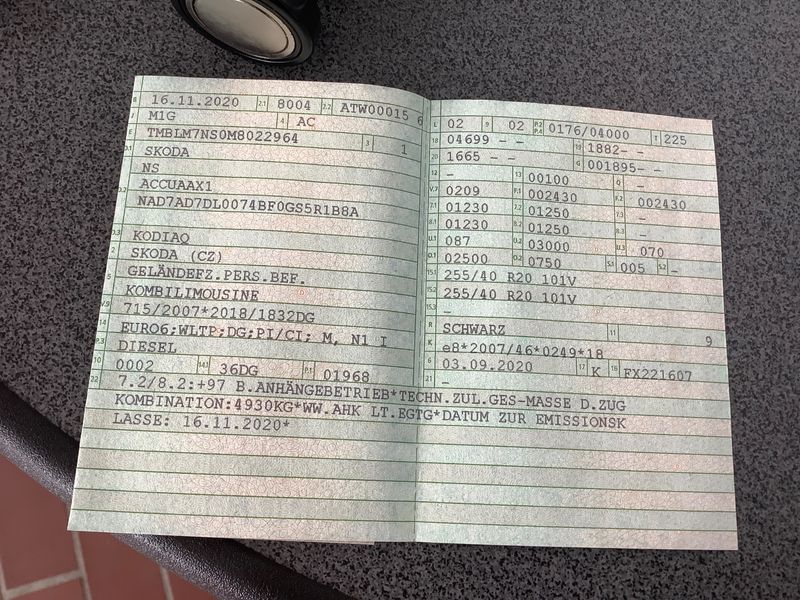 B 16.11.2020 2.1 8004 2.2 ATW00015 6
J M1G 4 AC
E TMBLM7NS0M8022964 3 1
D.1 SKODA
NS
ACCUAAX1
D.2 NAD7AD7DL0074BF0GS5R1B8A
D.3 KODIAQ
2 SKODA (CZ)
5 GELÄNDEFZ.PERS.BEF.
KOMBILIMOUSINE
V.9 715/2007*2018/1832DG
14 EURO6;WLTP;DG;PI/CI; M, N1 I
P.3 DIESEL
10 0002 14.1 36DG P.1 01968
L 02 9 02 P.2 P.4 0176/04000 T 225
18 04699 - - 19 1882- -
20 1665 - - G 001895- -
12 - 13 00100 Q -
V.7 0209 F.1 002430 F.2 002430
7.1 01230 7.2 01250 7.3 -
8.1 01230 8.2 01250 8.3 -
U.1 087 U.2 03000 U.3 070
O.1 02500 O.2 0750 S.1 005 S.2 -
15.1 255/40 R20 101V
15.2 255/40 R20 101V
15.3 -
R SCHWARZ 11 9
K e8*2007/46*0249*18
6 03.09.2020 17 K 16 FX221607
21 -
22 7.2/8.2:+97 B.ANHÄNGEBETRIEB*TECHN.ZUL.GES-MASSE D.ZUG
KOMBINATION:4930KG*WW.AHK LT.EGTG*DATUM ZUR EMISSIONSK
LASSE: 16.11.2020*